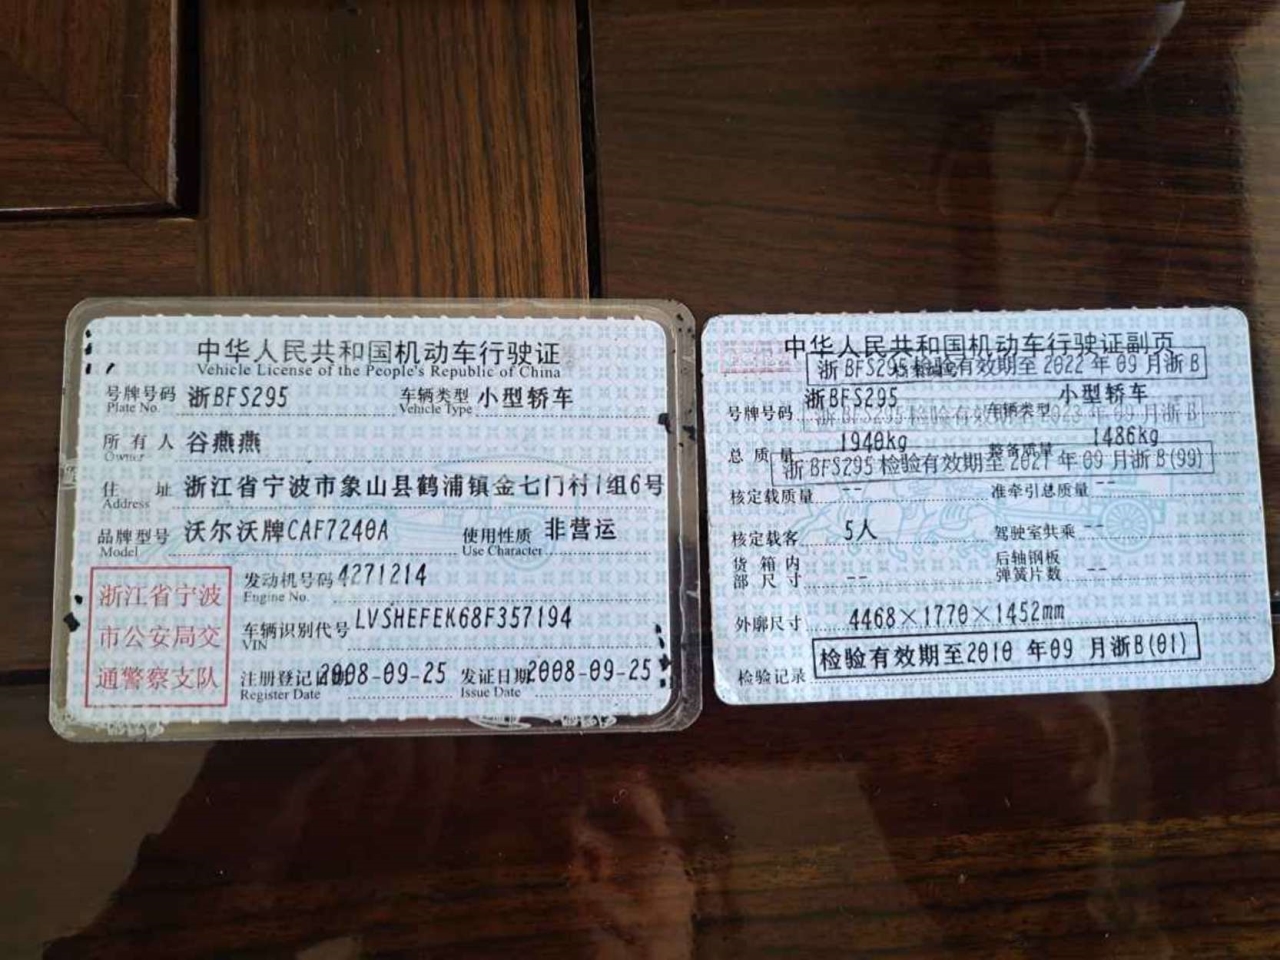 中华人民共和国机动车行驶证
Vehicle License of the People's Republic of China
号牌号码 浙BFS295 车辆类型 小型轿车
Plate No. Vehicle Type
所有人 谷燕燕
Owner
住址 浙江省宁波市象山县鹤浦镇金七门村1组6号
Address
品牌型号 沃尔沃牌CAF7240A 使用性质 非营运
Model Use Character
浙江省宁波
市公安局交
通警察支队
发动机号码 4271214
Engine No.
车辆识别代号 LVSHEFEK68F357194
VIN
注册登记日期 2008-09-25 发证日期 2008-09-25
Register Date Issue Date
中华人民共和国机动车行驶证副页
浙BFS295检验有效期至2022年09月浙B
号牌号码 浙BFS295 车辆类型 小型轿车
浙BFS295检验有效期至2023年09月浙B
总质量 1940kg 整备质量 1486kg
浙BFS295检验有效期至2021年09月浙B(99)
核定载质量 -- 准牵引总质量 --
核定载客 5人 驾驶室共乘 --
货箱内部尺寸 -- 后轴钢板弹簧片数 --
外廓尺寸 4468×1770×1452mm
检验记录 检验有效期至2010年09月浙B(01)